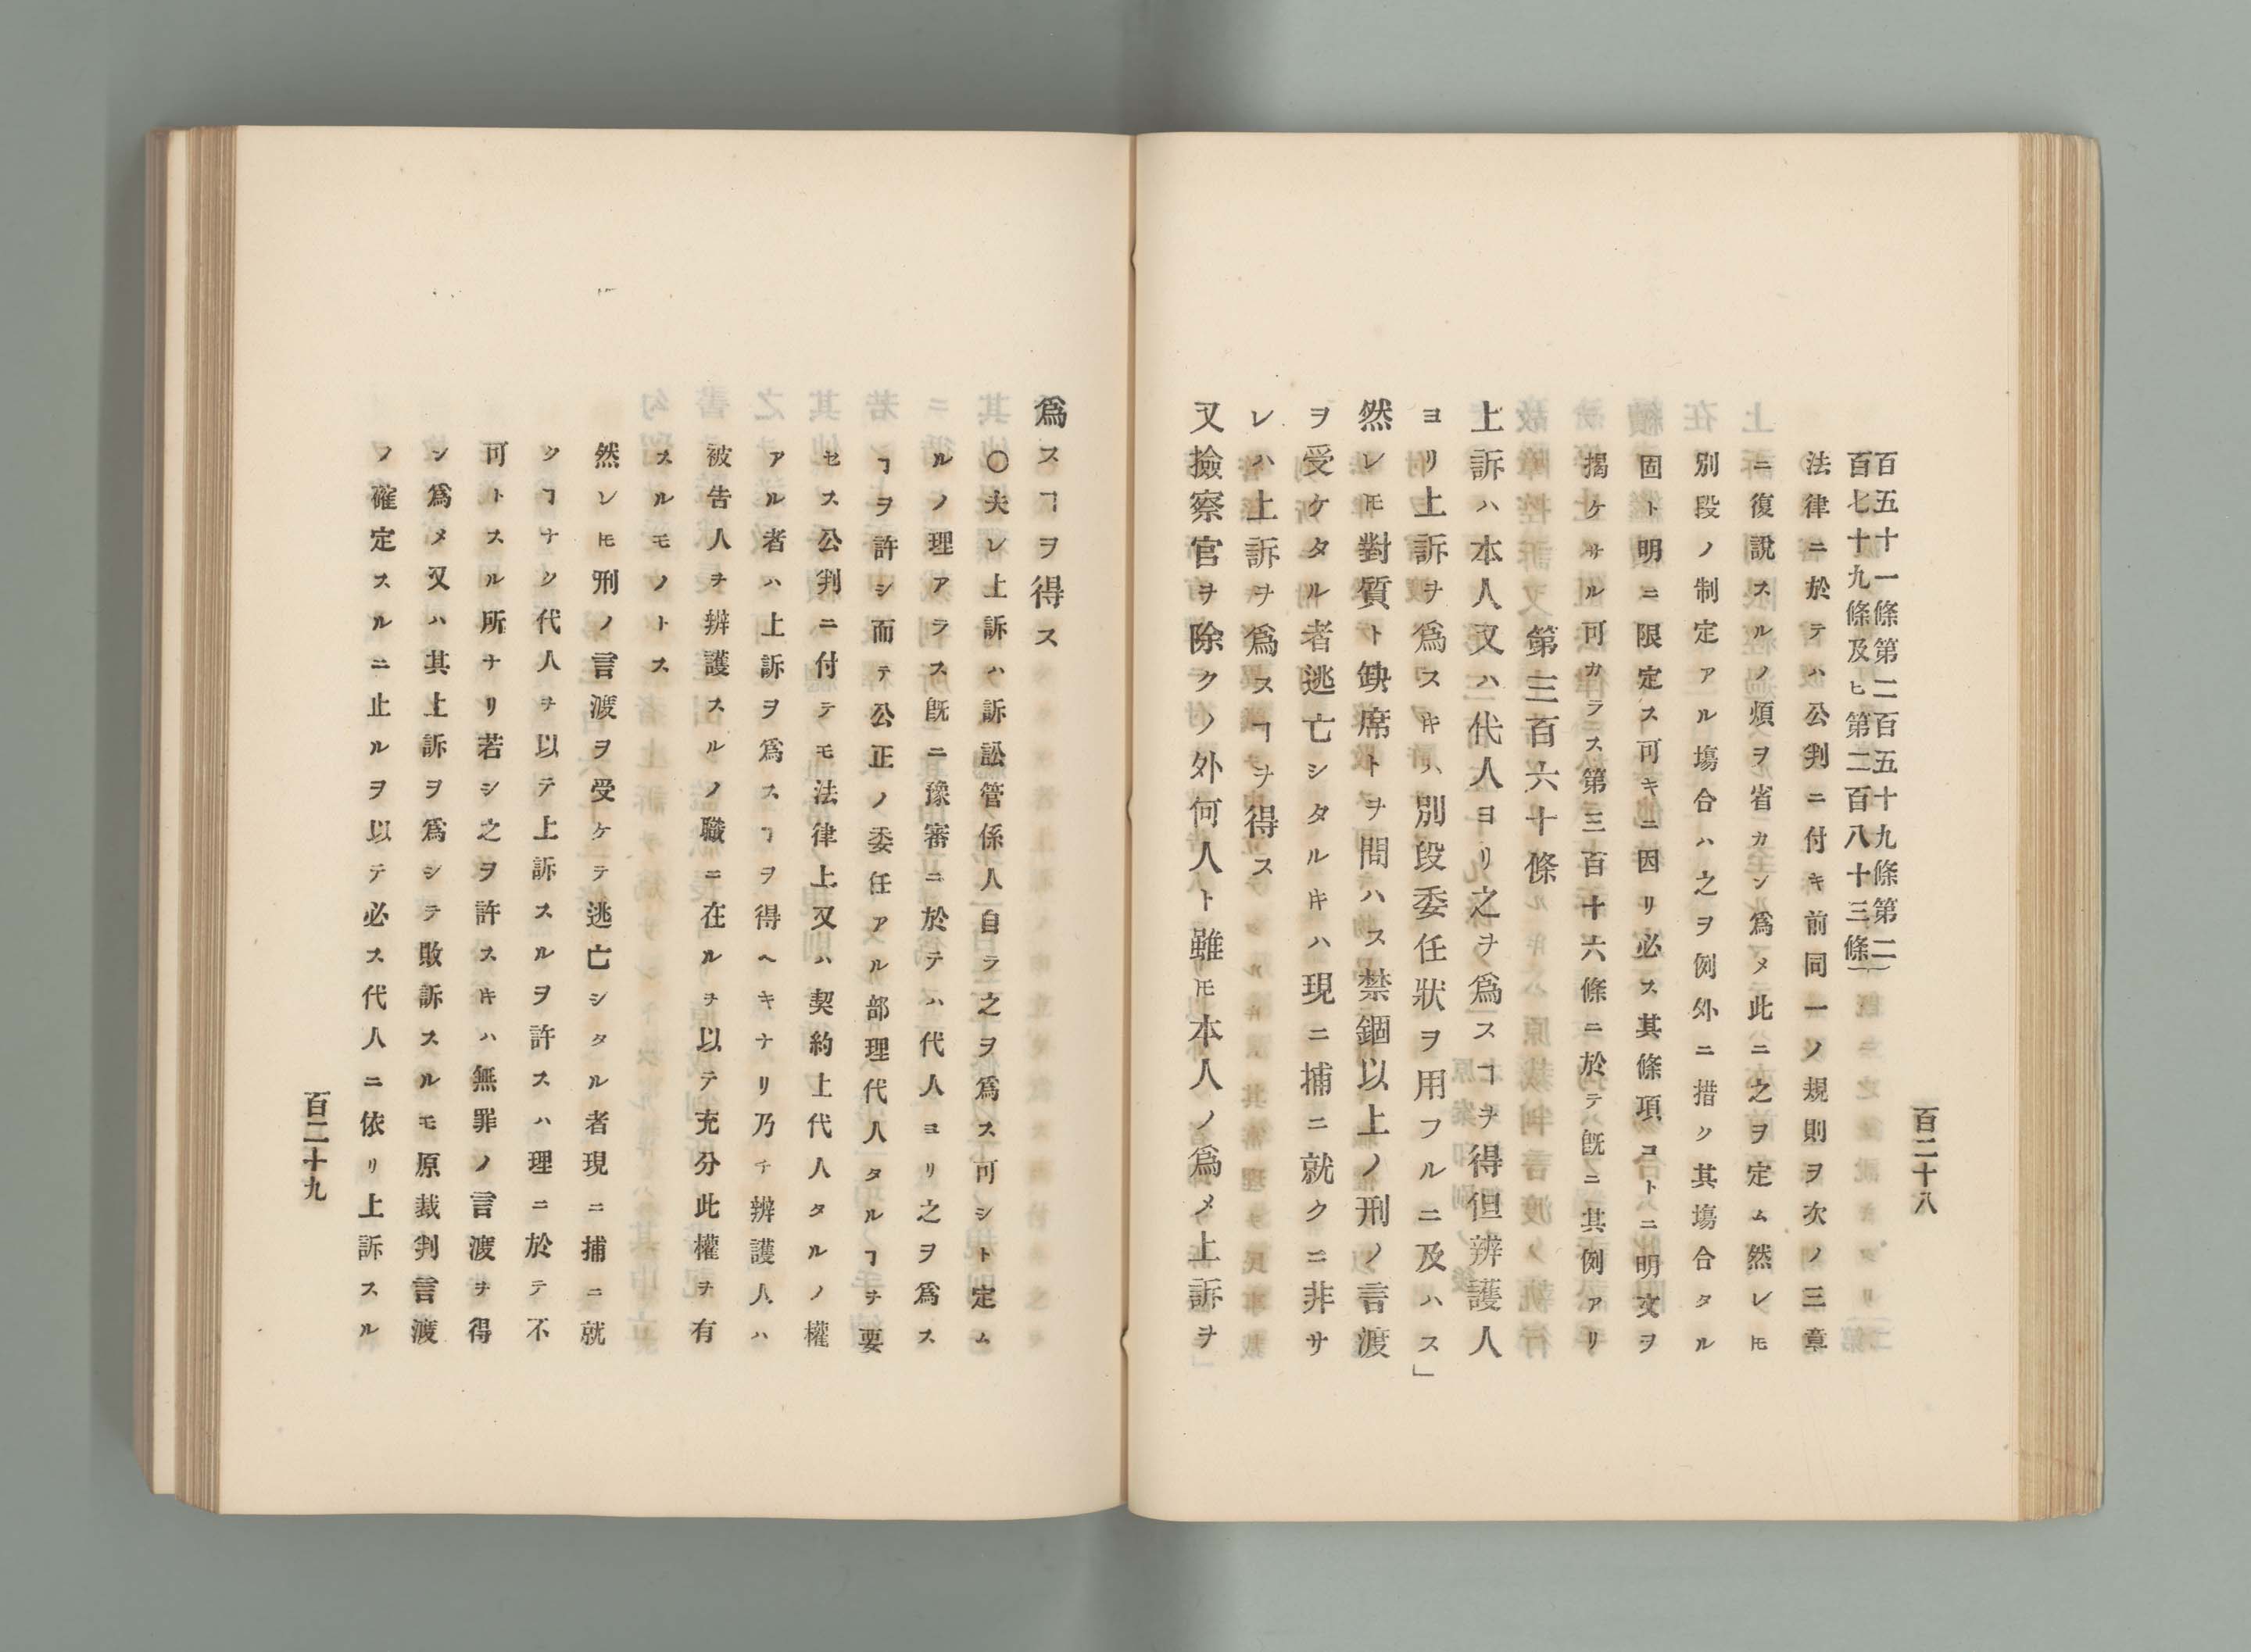 百二十八
百五十一條第二百五十九條第二
百七十九條及ヒ第二百八十三條)
法律ニ於テハ公判ニ付キ前同一ノ規則ヲ次ノ三章
ニ復說スルノ煩ヲ省カン爲メ此ニ之ヲ定ム然レ𪜈
別段ノ制定アル塲合ハ之ヲ例外ニ措ク其塲合タル
固ト明ニ限定ス可キニ因リ必ス其條項コトニ明文ヲ
揭ケサル可カラス第三百十六條ニ於テハ旣ニ其例アリ
第三百六十條
上訴ハ本人又ハ代人ヨリ之ヲ爲スヿヲ得但辨護人
ヨリ上訴ヲ爲スキハ別段委任狀ヲ用フルニ及ハス」
然レ𪜈對質ト缺席トヲ問ハス禁錮以上ノ刑ノ言渡
ヲ受ケタル者逃亡シタルキハ現ニ捕ニ就クニ非サ
レハ上訴ヲ爲スヿヲ得ス
又撿察官ヲ除クノ外何人ト雖𪜈本人ノ爲メ上訴ヲ
爲スヿヲ得ス
〇夫レ上訴ハ訴訟管係人自ラ之ヲ爲ス可シト定ム
ルノ理アラス旣ニ豫審ニ於テハ代人ヨリ之ヲ爲ス
ヿヲ許シ而テ公正ノ委任アル部理代人タルヿヲ要
セス公判ニ付テモ法律上又ハ契約上代人タルノ權
アル者ハ上訴ヲ爲スヿヲ得ヘキナリ乃チ辨護人ハ
被告人ヲ辨護スルノ職ニ在ルヲ以テ充分此權ヲ有
スルモノトス
然レ𪜈刑ノ言渡ヲ受ケテ逃亡シタル者現ニ捕ニ就
クヿナク代人ヲ以テ上訴スルヲ許スハ理ニ於テ不
可トスル所ナリ若シ之ヲ許スキハ無罪ノ言渡ヲ得
ン爲メ又ハ其上訴ヲ爲シテ敗訴スルモ原裁判言渡
ノ確定スルニ止ルヲ以テ必ス代人ニ依リ上訴スル
百二十九